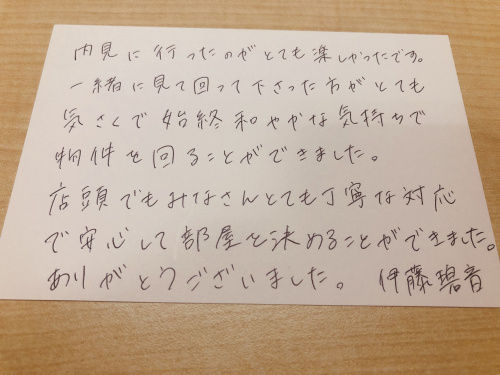 内見に行ったのがとても楽しかったです。
一緒に見て回って下さった方がとても
気さくで始終和やかな気持ちで
物件を回ることができました。
店頭でもみなさんとても丁寧な対応
で安心して部屋を決めることができました。
ありがとうございました。 伊藤碧音